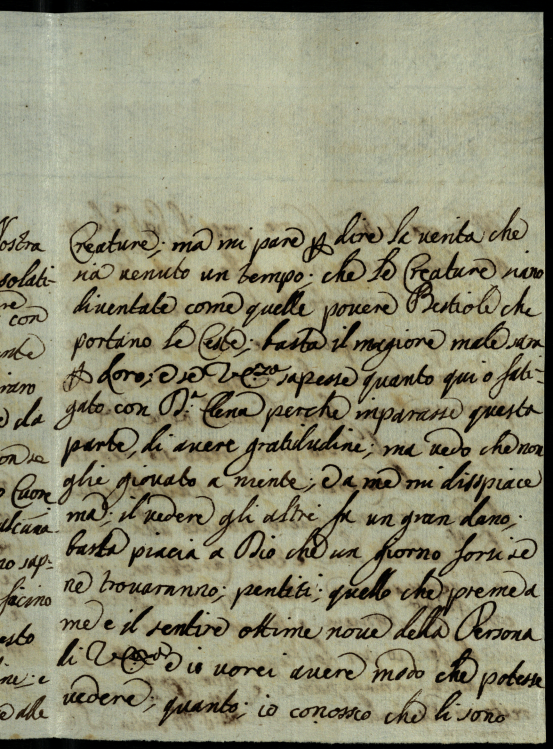 Nostra
solati-
re
con
ente
iraro
e da
on se
o Cuore
alcuna
no sap=
facino
esto
ne: e
e alle
Creature; ma mi pare p dire la verita che
sia venuto un tempo; che le Creature siano
diventate come quelle povere Bestiole che
portano le Ceste; basta il magiore male sara
p loro; e se sapesse quanto qui o fati-
gato con D.a Elena perche imparasse questa
parte, di avere gratiludine; ma vedo che non
glie giovato a niente; e a me mi disspiace
ma; il vedere gli altri fa un gran dano;
basta piacia a Dio che un giorno forsi se
ne trovaranno; pentiti; quello che preme a
me e il sentire ottime nove della Persona
di e io vorei avere modo che potesse
vedere; quanto; io conossco che li sono